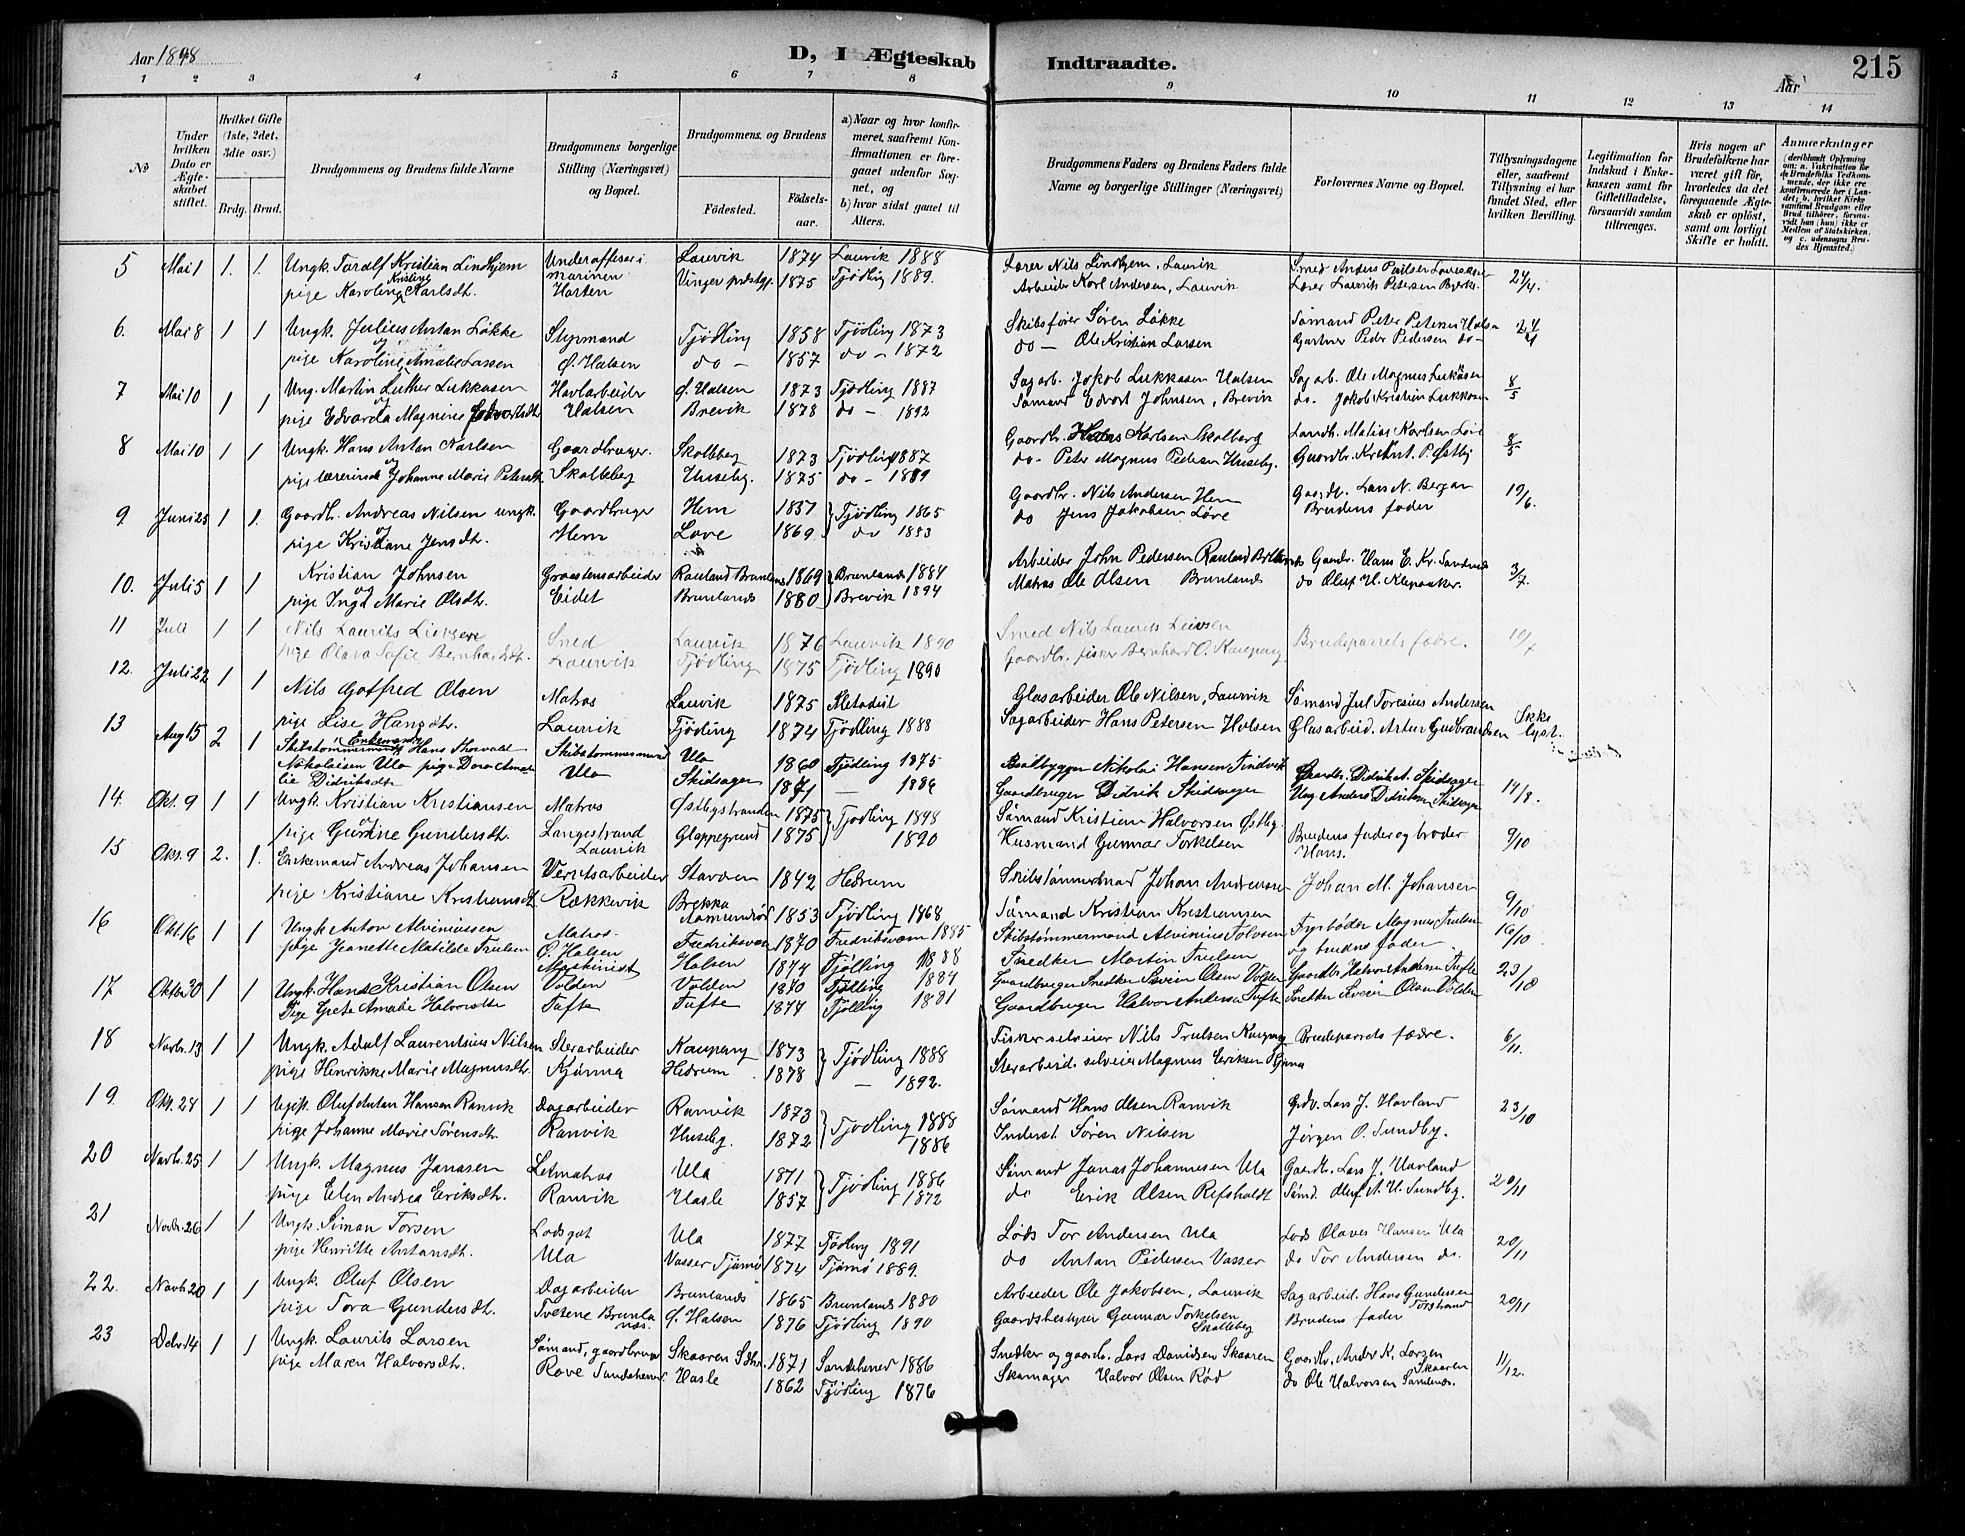 Aar 1898
D, I Ægteskab Indtraadte.
Aar
215
1 2 3 4 5 6 7 8 9 10 11 12 13 14
No
Under hvilken Dato er Ægteskabet stiftet.
Hvilket Gifte (1ste, 2det, 3die osv.)
Brdg. Brud.
Brudgommens og Brudens fulde Navne
Brudgommens borgerlige Stilling (Næringsvei) og Bopæl.
Brudgommens og Brudens
Fødested.
Fødselsaar.
a) Naar og hvor konfirmeret, saafremt Konfirmationen er foregaaet udenfor Sognet, og
b) hvor sidst gaaet til Alters.
Brudgommens Faders og Brudens Faders fulde Navne og borgerlige Stillinger (Næringsvei)
Forlovernes Navne og Bopæl.
Tillysningsdagene eller, saafremt Tillysning ei har fundet Sted, efter hvilken Bevilling.
Legitimation for Indskud i Enkekassen samt for Giftetilladelse, forsaavidt saadan tiltrænges.
Hvis nogen af Brudefolkene har været gift før, hvorledes da det foregaaende Ægteskab er opløst, samt om lovligt Skifte er holdt.
Anmærkninger
5 Mai 1 1. 1. Ungk. Toralf Kristian Lindhjem Underofficer i Laurvik 1874 Laurvik 1888 Lærer Nils Lindhjem, Laurvik Smed Anders Paulsen 24/4.
pige Karoline Kristine Karlsdt. marinen Horten Vinger præstgj. 1875 Tjødling 1889. Arbeider Karl Andersen, Laurvik Lærer Laurvik Petersen Bjerke.
6. Mai 8 1 1 Ungk. Julius Antan Løkke Styrmand Tjödling 1858 Tjödling 1873 Skibsfører Søren Løkke Sømand Peter Petersen Halsen 24/4
og pige Karoline Amalie Lassen Ø. Halsen do - 1857 do - 1872 do - Ole Kristian Larsen Gartner Peder Pedersen do -
7 Mai 10 1 1 Ung. Martin Luther Lukkasen Havlarbeider Ø. Halsen 1873 Tjødling 1887 Sagarb. Jakob Lukkasen Halsen Sagarb. Ole Magnus Lukasen 8/5
og pige Edvarda Magnine Edvartsdt. Halsen Brevik 1878 do - 1892 Sømand Edvart Johnsen, Brevik do. Jakob Kristian Lukkasen
8 Mai 10 1 1 Ungk. Hans Antan Karlsen Gaardbruger Skalleberg 1873 Tjødling 1887 Gaardbr. Hans Karlsen Skalberg Landh. Matias Karlsen Løve 8/5
og pige lærerinde Johanne Marie Petersdt Skalleberg Huseby. 1875 do - 1889 do - Peter Magnus Pedersen Huseby. Guardbr. Krist. P. Østby
9. Juni 25 1 1. Gaardb. Andreas Nilsen ungk. Gaardbruger Hem 1837 Tjødling 1865 Gaardbr. Nils Andersen Hem Gaardb. Lars N. Bergan 19/6.
og pige Kristiane Jensdt. Hem Løve 1869. do 1883 do Jens Jakobsen Løve Brudens fader
10. Juli 5 1 1 Kristian Johnsen Graastensarbeider Rauland Brunlanes 1869 Brunlanes 1884 Arbeider John Pedersen Rauland Gaardbr. Hans E. Kr. Sandnes 3/7.
og pige Inga Marie Olsdt. Eidet Brunlanes 1880 Brevik 1894 Matros Ole Olsen Brunlanes do Oluf H. Klepaaker.
11 Juli 1 1 Nils Laurits Lievsen Smed Laurvik 1876 Laurvik 1890 Smed Nils Laurits Leivsen Brudeparrets fædre. 10/7
pige Olara Sofie Bernhardsdt. Laurvik Tjødling 1875 Tjødling 1890 Gaardbr. fisker Bernhard O. Kaupang
12. Juli 22 1 1 Nils Gotfred Olsen Matros Laurvik 1875 Metodist Glasarbeider Ole Nilsen, Laurvik Sømand Jul Toresius Andersen Ikke
pige Lise Hansdt. Laurvik Tjödling 1874 Tjödlling 1888 Sagarbeider Hans Petersen Halsen Glasarbeid. Artur Gudbrandsen lyst.
13 Aug 15 2 1 Enkemand Skibstømmermand Hans Thorvald Skibstømmermand Ula 1860 Tjödling 1875 Baatbygger Nikolai Hansen Tindvik Gaardbr. Didrik A. Skidsager 14/8.
Nikolaisen Ula pige Dora Amalie Didriksdt Ula Skidsager 1871 — 1886 Gaardbruger Didrik Skidsager Ung. Anders Didriksen Skidsager
14. Okt. 9 1 1 Ungk. Kristian Kristiansen Matros Østbystranden 1875 Tjodling 1898 Sømand Kristian Halvorsen Østby. Brudens fader og broder 9/10
pige Gurine Gundersdt. Langestrand Laurvik Gloppegrund 1875 1890 Husmand Gunnar Torkelsen Hans.
15 Okt. 9 2. 1. Enkemand Andreas Johansen Verftsarbeider Staværen 1842 Hedrum Skibstømmermad Johan Andreassen Johan M. Johansen 9/10
pige Kristiane Kristiansdt. Rækkevik Brekke Aamundrød 1853 Tjødling 1868 Sømand Kristian Kristiansen
16 Okt. 16 1 1 Ungk. Anton Alviniussen Matros Fredriksværn 1870 Fredriksværn 1885 Skibstømmermand Alvinius Tolvsen Fyrbøder Magnus Trulsen 16/10
pige Jeanette Matilde Trulsen Ø. Halsen Halsen 1874 Tjølling 1888 Snedker Martin Trulsen og brudens fader
17 Oktbr 30 1 1 Ungk. Hans Kristian Olsen Maskinist Volden Volden 1870 Tjølling 1884 Gaardbruger Snedker Severin Olsen Volden Gaardbr Halvor Andersen Tufte 23/10
Pige Grete Amalie Halvorsdt Tufte Tufte 1874 Tjølling 1881 Gaardbruger Halvor Andersen Tufte Snekker Severin Olsen Volden
18 Novbr. 13 1 1 Ungk. Adolf Laurentsius Nilsen Stenarbeider Kaupang 1873 Tjödling 1888 Fisker selveier Nils Trulsen Kaupang Brudeparrets fædre. 6/11.
pige Henrikke Marie Magnusdt. Kjønna Hedrum 1878 — 1892. Stenarbeid. selveier Magnus Eriksen Kjønna
19. Okt. 28 1 1 Ugift. Oluf Antan Hansen Ranvik Dagarbeider Ranvik 1873 Tjodling 1888 Sømand Hans Olsen Ranvik Grdb. Lars J. Havland 23/10
pige Johanne Marie Sørensdt. Ranvik Huseby. 1872 1886 Inderst. Søren Nilsen Jørgen O. Sundby.
20 Novbr. 25 1 1 Ungk. Magnus Janasen Letmatros Ula 1871 Tjödling 1886 Sømand Janas Johannesen Ula Gaardb. Lars J. Havland 20/11
pige Elen Andrea Eriksdt. Ranvik Hasle 1857 1872 do Erik Olsen Refsholdt Sømd. Oluf A. H. Sundby.
21 Novbr. 26 1 1 Ungk. Simon Torsen Lodsgut Ula 1877 Tjödling 1891 Lods Tor Andersen Ula Lods Olaves Hansen Ula 20/11
pige Henriette Antansdt. Ula Vasser Tjømø 1874 Tjømø 1889. do Antan Pedersen Vasser do Tor Andersen do.
22. Novbr 20 1 1 Ungk. Oluf Olsen Dagarbeider Brunlanes 1865 Brunlanes 1880 Arbeider Ole Jakobsen, Laurvik Sagarbeid. Hans Gundersen Torstrand 20/11
pige Tora Gundersdt. Tvetene Brunlanes. Ø. Halsen 1876 Tjödling 1890 Gaardsbestyrer Gunnar Torkelsen Skalleberg Brudens fader
23 Debr 14 1 1 Ungk. Laurits Larsen Sømand, gaardbruger Skaaren Sdhr. 1871 Sandeherred 1886 Snedker og gaardb. Lars Davidsen Skaaren Gaardbr. Andr. K. Larsen Skaaren 11/12.
pige Maren Halvorsdt. Rove Sandeherred Hasle 1862 Tjödling 1876 Skomager Halvor Olsen Rød do Ole Halvorsen Sandnæs.